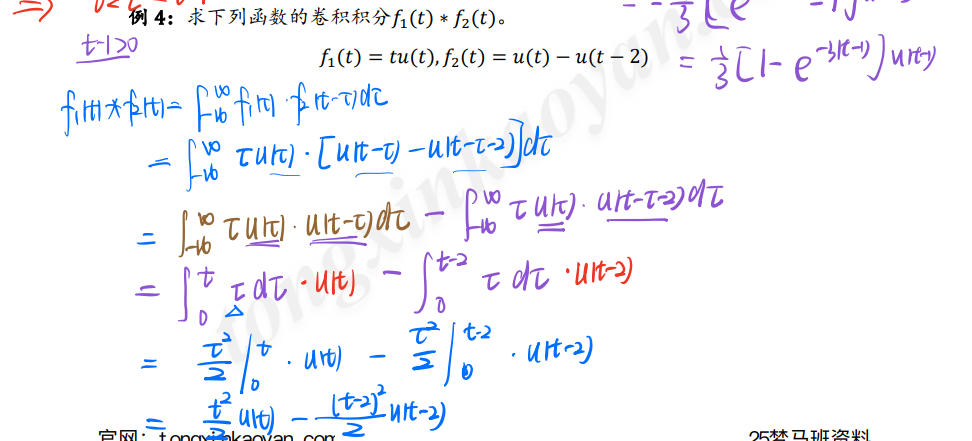 例 4：求下列函数的卷积积分f₁(t) * f₂(t)。
t-1>0
f₁(t) = tu(t), f₂(t) = u(t) − u(t − 2)
= 1/3 [1- e^{-3(t-1)}] u(t-1)
f₁(t)*f₂(t) = ∫_{-∞}^{∞} f₁(τ)·f₂(t-τ)dτ
= ∫_{-∞}^{∞} τu(τ)·[u(t-τ) - u(t-τ-2)]dτ
= ∫_{-∞}^{∞} τu(τ)·u(t-τ)dτ - ∫_{-∞}^{∞} τu(τ)·u(t-τ-2)dτ
= ∫_0^t τdτ·u(t) - ∫_0^{t-2} τdτ·u(t-2)
= τ²/2 |_0^t · u(t) - τ²/2 |_0^{t-2} · u(t-2)
= t²/2 u(t) - (t-2)²/2 u(t-2)
官网：tongxinkaoyan.com
25梦马班资料
tongxinkaoyan.